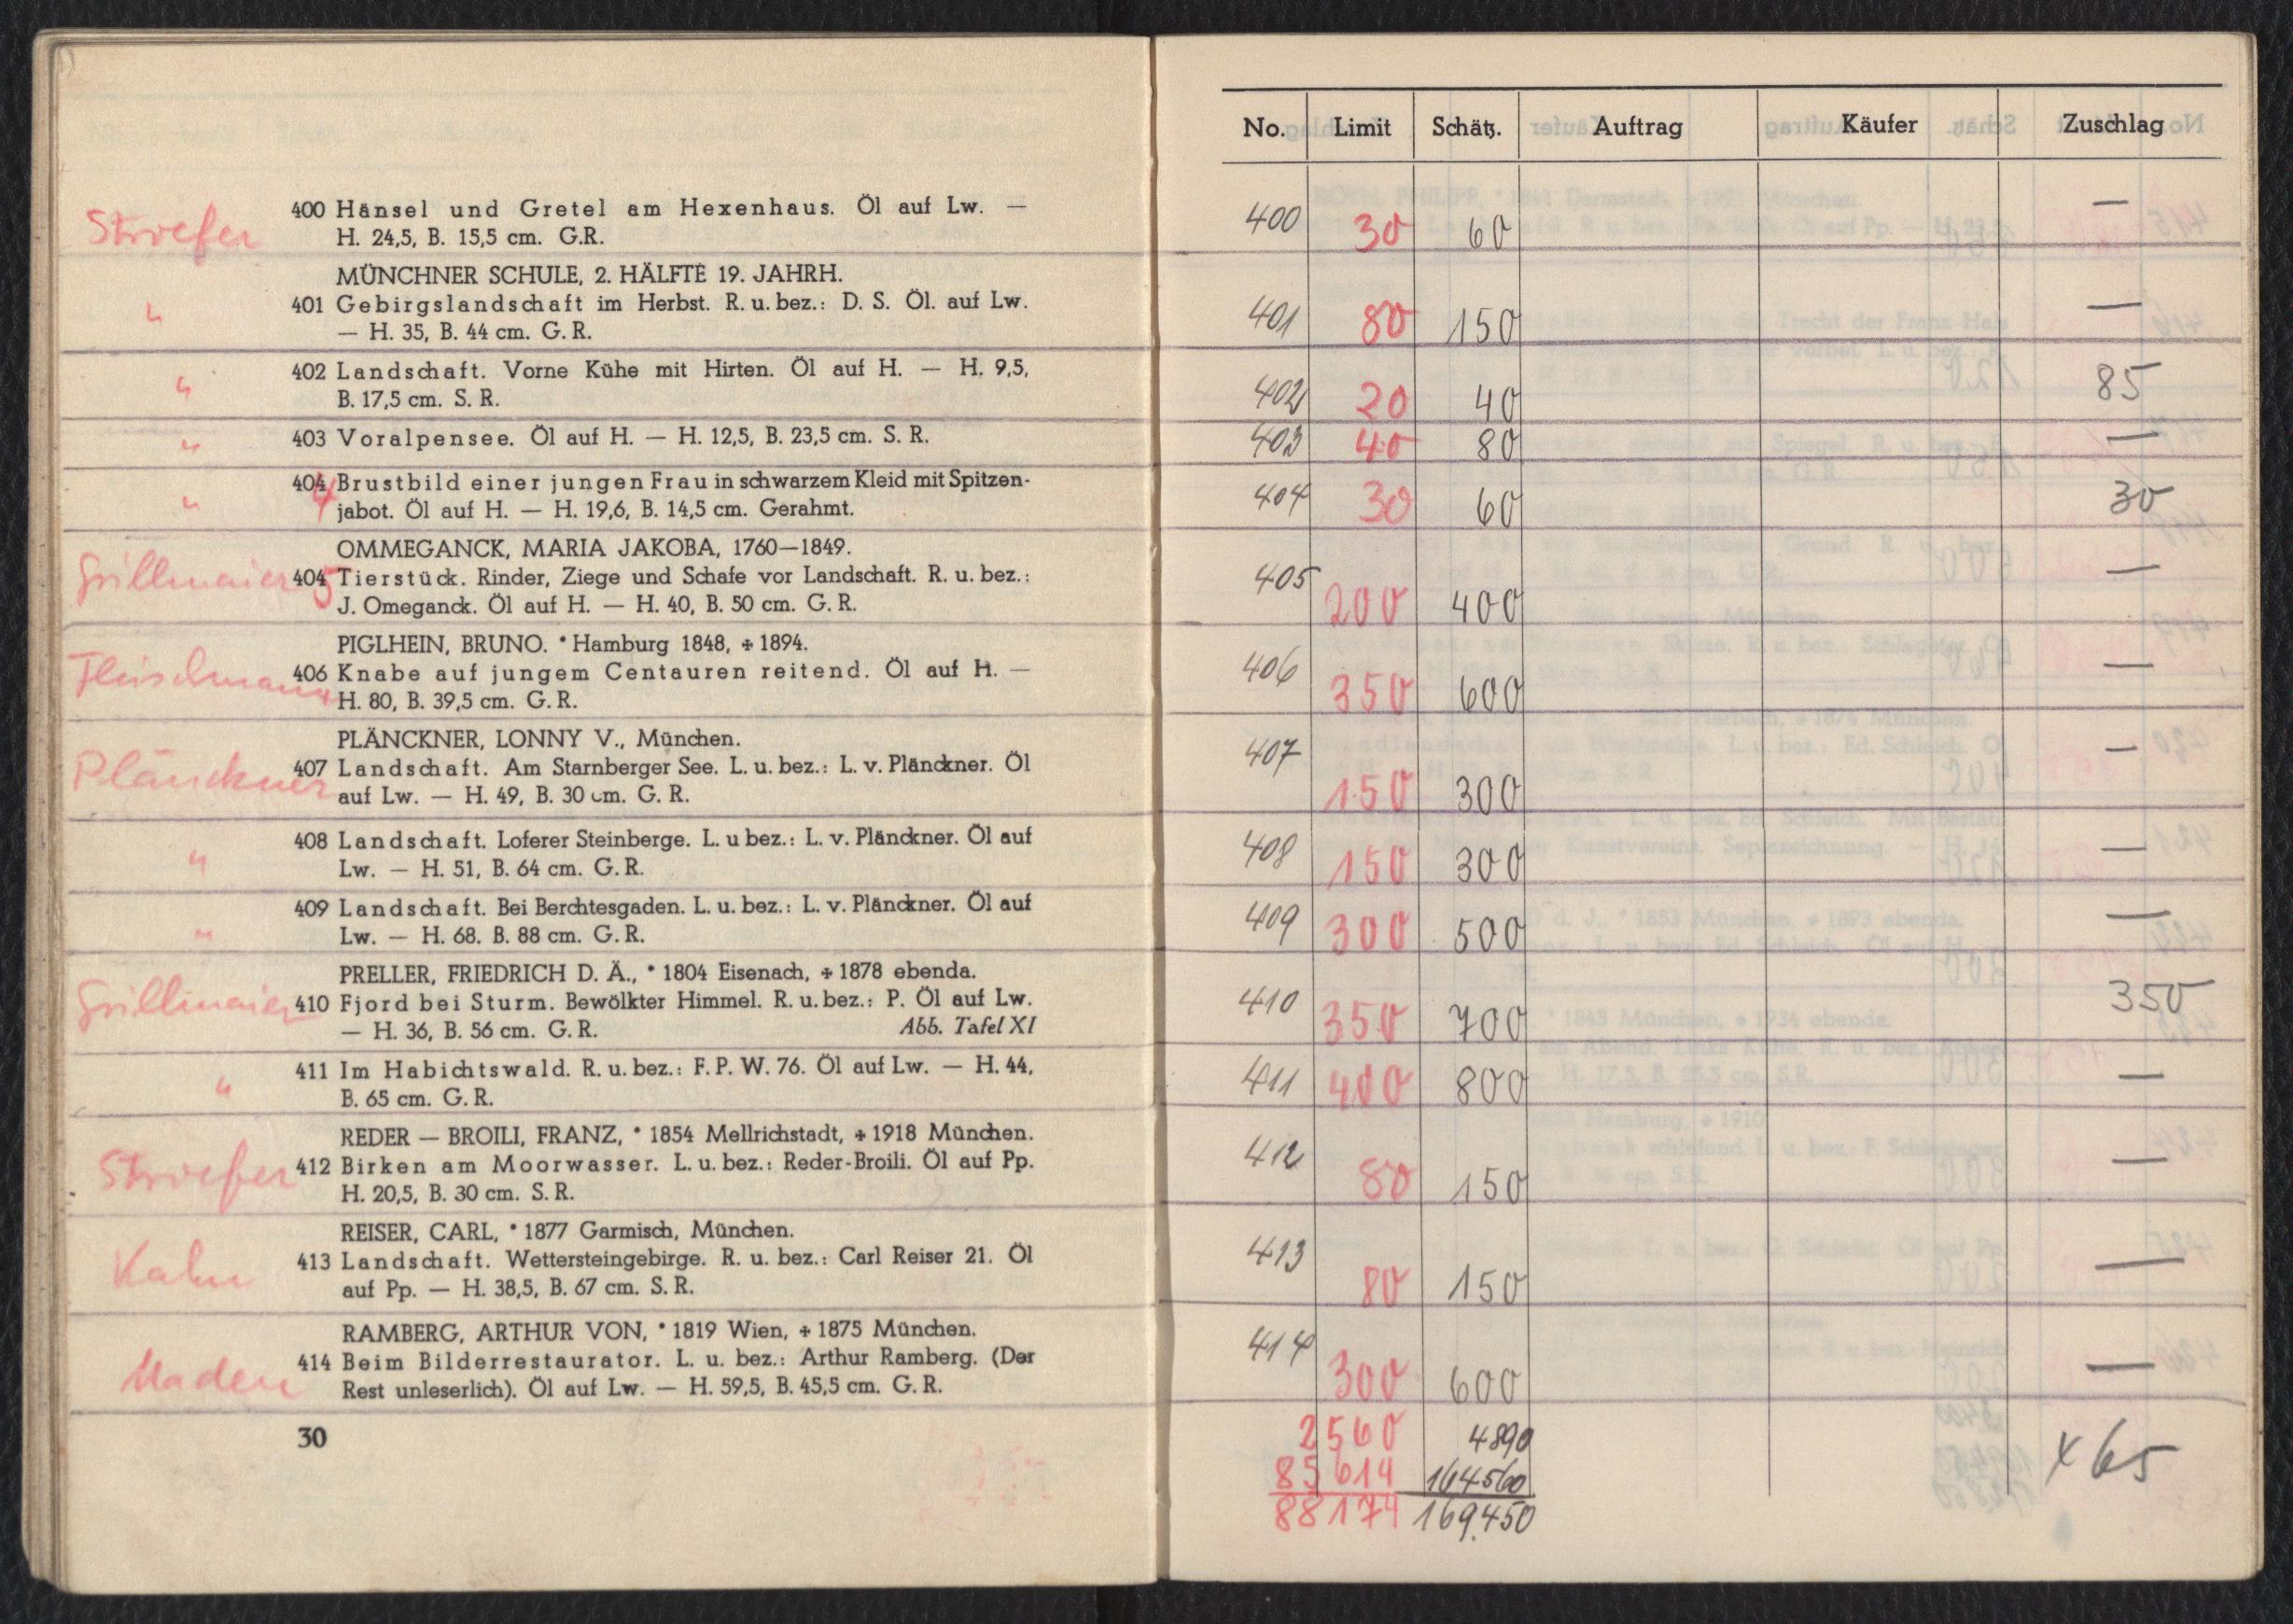 Stroefer
400 Hänsel und Gretel am Hexenhaus. Öl auf Lw. —
H. 24,5, B. 15,5 cm. G.R.
MÜNCHNER SCHULE, 2. HÄLFTE 19. JAHRH.
" 401 Gebirgslandschaft im Herbst. R. u. bez.: D. S. Öl. auf Lw.
— H. 35, B. 44 cm. G. R.
" 402 Landschaft. Vorne Kühe mit Hirten. Öl auf H. — H. 9,5,
B. 17,5 cm. S. R.
" 403 Voralpensee. Öl auf H. — H. 12,5, B. 23,5 cm. S. R.
" 404 4 Brustbild einer jungen Frau in schwarzem Kleid mit Spitzen-
jabot. Öl auf H. — H. 19,6, B. 14,5 cm. Gerahmt.
OMMEGANCK, MARIA JAKOBA, 1760—1849.
Grillmaier 404 5 Tierstück. Rinder, Ziege und Schafe vor Landschaft. R. u. bez.:
J. Omeganck. Öl auf H. — H. 40, B. 50 cm. G. R.
PIGLHEIN, BRUNO. * Hamburg 1848, + 1894.
Fleischmann 406 Knabe auf jungem Centauren reitend. Öl auf H. —
H. 80, B. 39,5 cm. G. R.
PLÄNCKNER, LONNY V., München.
Plänckner 407 Landschaft. Am Starnberger See. L. u. bez.: L. v. Plänckner. Öl
auf Lw. — H. 49, B. 30 cm. G. R.
" 408 Landschaft. Loferer Steinberge. L. u bez.: L. v. Plänckner. Öl auf
Lw. — H. 51, B. 64 cm. G. R.
" 409 Landschaft. Bei Berchtesgaden. L. u. bez.: L. v. Plänckner. Öl auf
Lw. — H. 68. B. 88 cm. G. R.
PRELLER, FRIEDRICH D. Ä., * 1804 Eisenach, + 1878 ebenda.
Grillmaier 410 Fjord bei Sturm. Bewölkter Himmel. R. u. bez.: P. Öl auf Lw.
— H. 36, B. 56 cm. G. R. Abb. Tafel XI
" 411 Im Habichtswald. R. u. bez.: F. P. W. 76. Öl auf Lw. — H. 44,
B. 65 cm. G. R.
REDER — BROILI, FRANZ, * 1854 Mellrichstadt, + 1918 München.
Stroefer 412 Birken am Moorwasser. L. u. bez.: Reder-Broili. Öl auf Pp.
H. 20,5, B. 30 cm. S. R.
REISER, CARL, * 1877 Garmisch, München.
Kahn 413 Landschaft. Wettersteingebirge. R. u. bez.: Carl Reiser 21. Öl
auf Pp. — H. 38,5, B. 67 cm. S. R.
RAMBERG, ARTHUR VON, * 1819 Wien, + 1875 München.
Maden 414 Beim Bilderrestaurator. L. u. bez.: Arthur Ramberg. (Der
Rest unleserlich). Öl auf Lw. — H. 59,5, B. 45,5 cm. G. R.
30
No. Limit Schätz. Auftrag Käufer Zuschlag
400 30 60 —
401 80 150 —
402 20 40 85
403 40 80 —
404 30 60 30
405 200 400 —
406 350 600 —
407 150 300 —
408 150 300 —
409 300 500 —
410 350 700 350
411 400 800 —
412 80 150 —
413 80 150 —
414 300 600 —
2560 4890
85614 164560 x 65
88174 169.450